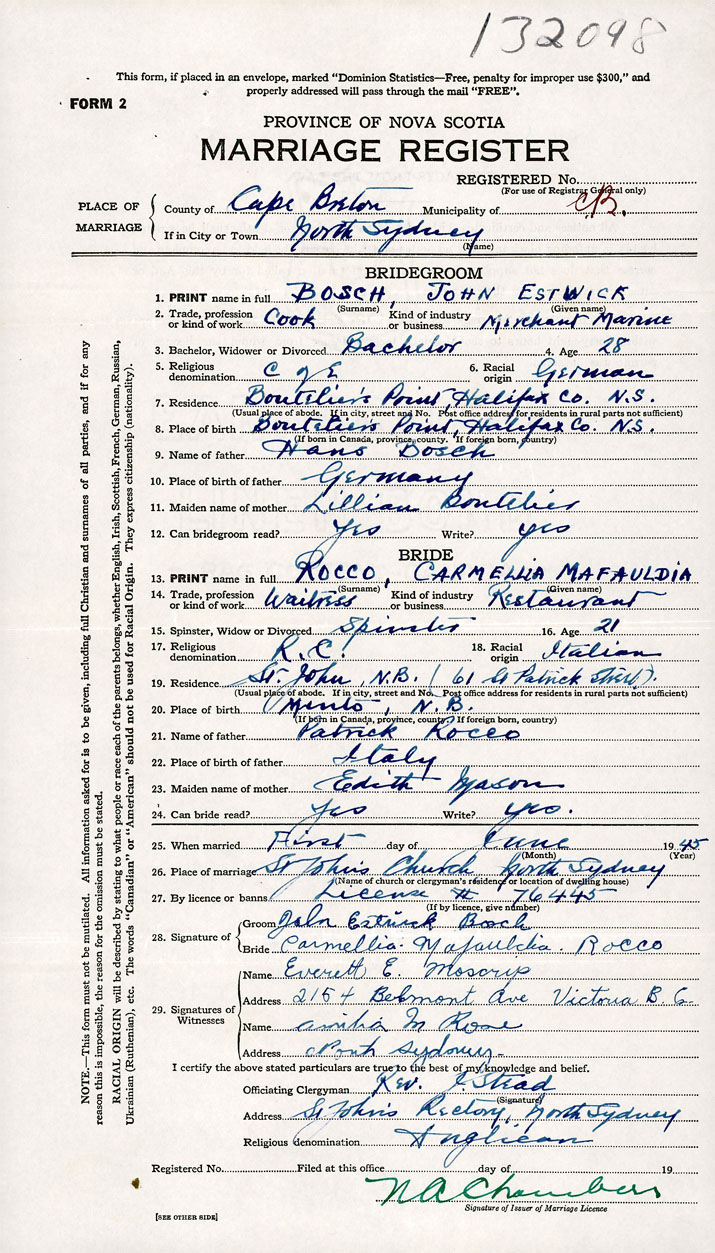 132098
This form, if placed in an envelope, marked "Dominion Statistics—Free, penalty for improper use $300," and
properly addressed will pass through the mail "FREE".
FORM 2
PROVINCE OF NOVA SCOTIA
MARRIAGE REGISTER
REGISTERED No.
(For use of Registrar General only)
PLACE OF MARRIAGE
County of Cape Breton Municipality of C.B.
If in City or Town North Sydney
(Name)
BRIDEGROOM
1. PRINT name in full BOSCH, JOHN ESTWICK
(Surname) (Given name)
2. Trade, profession or kind of work Cook Kind of industry or business Merchant Marine
3. Bachelor, Widower or Divorced Bachelor 4. Age 28
5. Religious denomination C of E 6. Racial origin German
7. Residence Boutelier's Point, Halifax Co. N.S.
(Usual place of abode. If in city, street and No. Post office address for residents in rural parts not sufficient)
8. Place of birth Boutelier's Point, Halifax Co. N.S.
(If born in Canada, province, county. If foreign born, country)
9. Name of father Hans Bosch
10. Place of birth of father Germany
11. Maiden name of mother Lillian Boutelier
12. Can bridegroom read? Yes Write? yes
BRIDE
13. PRINT name in full ROCCO, CARMELLIA MAFAULDIA
(Surname) (Given name)
14. Trade, profession or kind of work Waitress Kind of industry or business Restaurant
15. Spinster, Widow or Divorced Spinster 16. Age 21
17. Religious denomination R.C. 18. Racial origin Italian
19. Residence St. John, N.B. (61 St Patrick Street).
(Usual place of abode. If in city, street and No. Post office address for residents in rural parts not sufficient)
20. Place of birth Minto, N.B.
(If born in Canada, province, county. If foreign born, country)
21. Name of father Patrick Rocco
22. Place of birth of father Italy
23. Maiden name of mother Edith Mason
24. Can bride read? Yes Write? yes.
25. When married First day of June 1945
(Month) (Year)
26. Place of marriage St John's Church North Sydney
(Name of church or clergyman's residence or location of dwelling house)
27. By licence or banns License # 76445
(If by licence, give number)
28. Signature of
Groom John Estwick Bosch
Bride Carmellia Mafauldia Rocco
29. Signatures of Witnesses
Name Everett E. Moscrip
Address 2154 Belmont Ave Victoria B.C.
Name M Rose
Address North Sydney
I certify the above stated particulars are true to the best of my knowledge and belief.
Officiating Clergyman Rev. J. Stead
(Signature)
Address St John's Rectory, North Sydney
Religious denomination Anglican
Registered No. Filed at this office day of 19
N A Chambers
Signature of Issuer of Marriage Licence
[SEE OTHER SIDE]
NOTE.—This form must not be mutilated. All information asked for is to be given, including full Christian and surnames of all parties, and if for any
reason this is impossible, the reason for the omission must be stated.
RACIAL ORIGIN will be described by stating to what people or race each of the parents belongs, whether English, Irish, Scottish, French, German, Russian,
Ukrainian (Ruthenian), etc. The words "Canadian" or "American" should not be used for Racial Origin. They express citizenship (nationality).